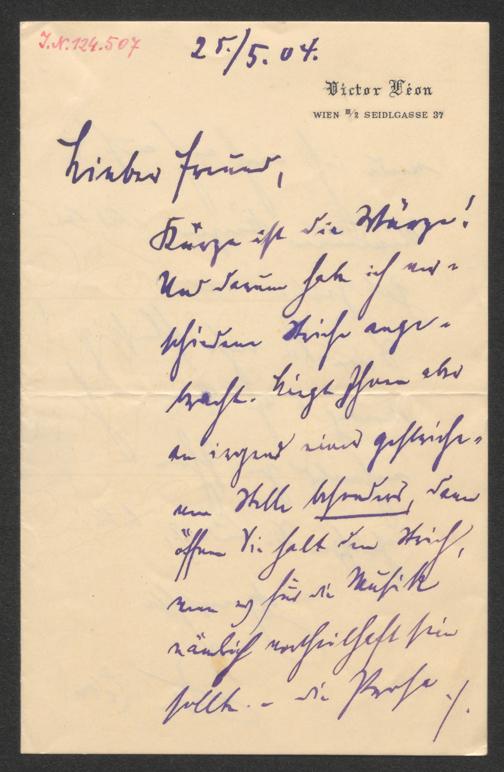 I.N. 124.507
25./5. 04.
Victor Léon
WIEN III/2 SEIDLGASSE 37
Lieber Freund,
Kürze ist die Würze!
Und darum habe ich ver-
schiedene Striche ange-
bracht. Liegt Ihnen aber
an irgend einer gestriche-
nen Stelle besonders, dann
öffnen Sie halt den Strich,
wenn es für die Musik
nämlich vortheilhaft sein
sollte. – Die Prosa ./.